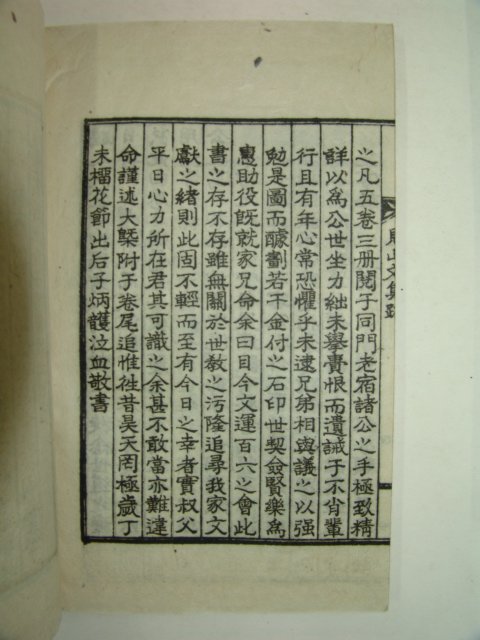 山文集跋
之凡五卷三册閱于同門老宿諸公之手極致精
詳以爲公世坐力絀未擧賫恨而遺誡于不肖輩
行且有年心常恐懼乎未逮兄弟相與議之以强
勉是圖而醵劃若干金付之石印世契僉賢樂爲
助役旣就家兄命余曰目今文運百六之會此
書之存不存雖無關於世敎之汚隆追尋我家文
獻之緖則此固不輕而至有今日之幸者實叔父
平日心力所在君其可識之余甚不敢當亦難違
命謹述大槩附于卷尾追惟徃昔昊天罔極歲丁
未榴花節出后子炳頀泣血敬書